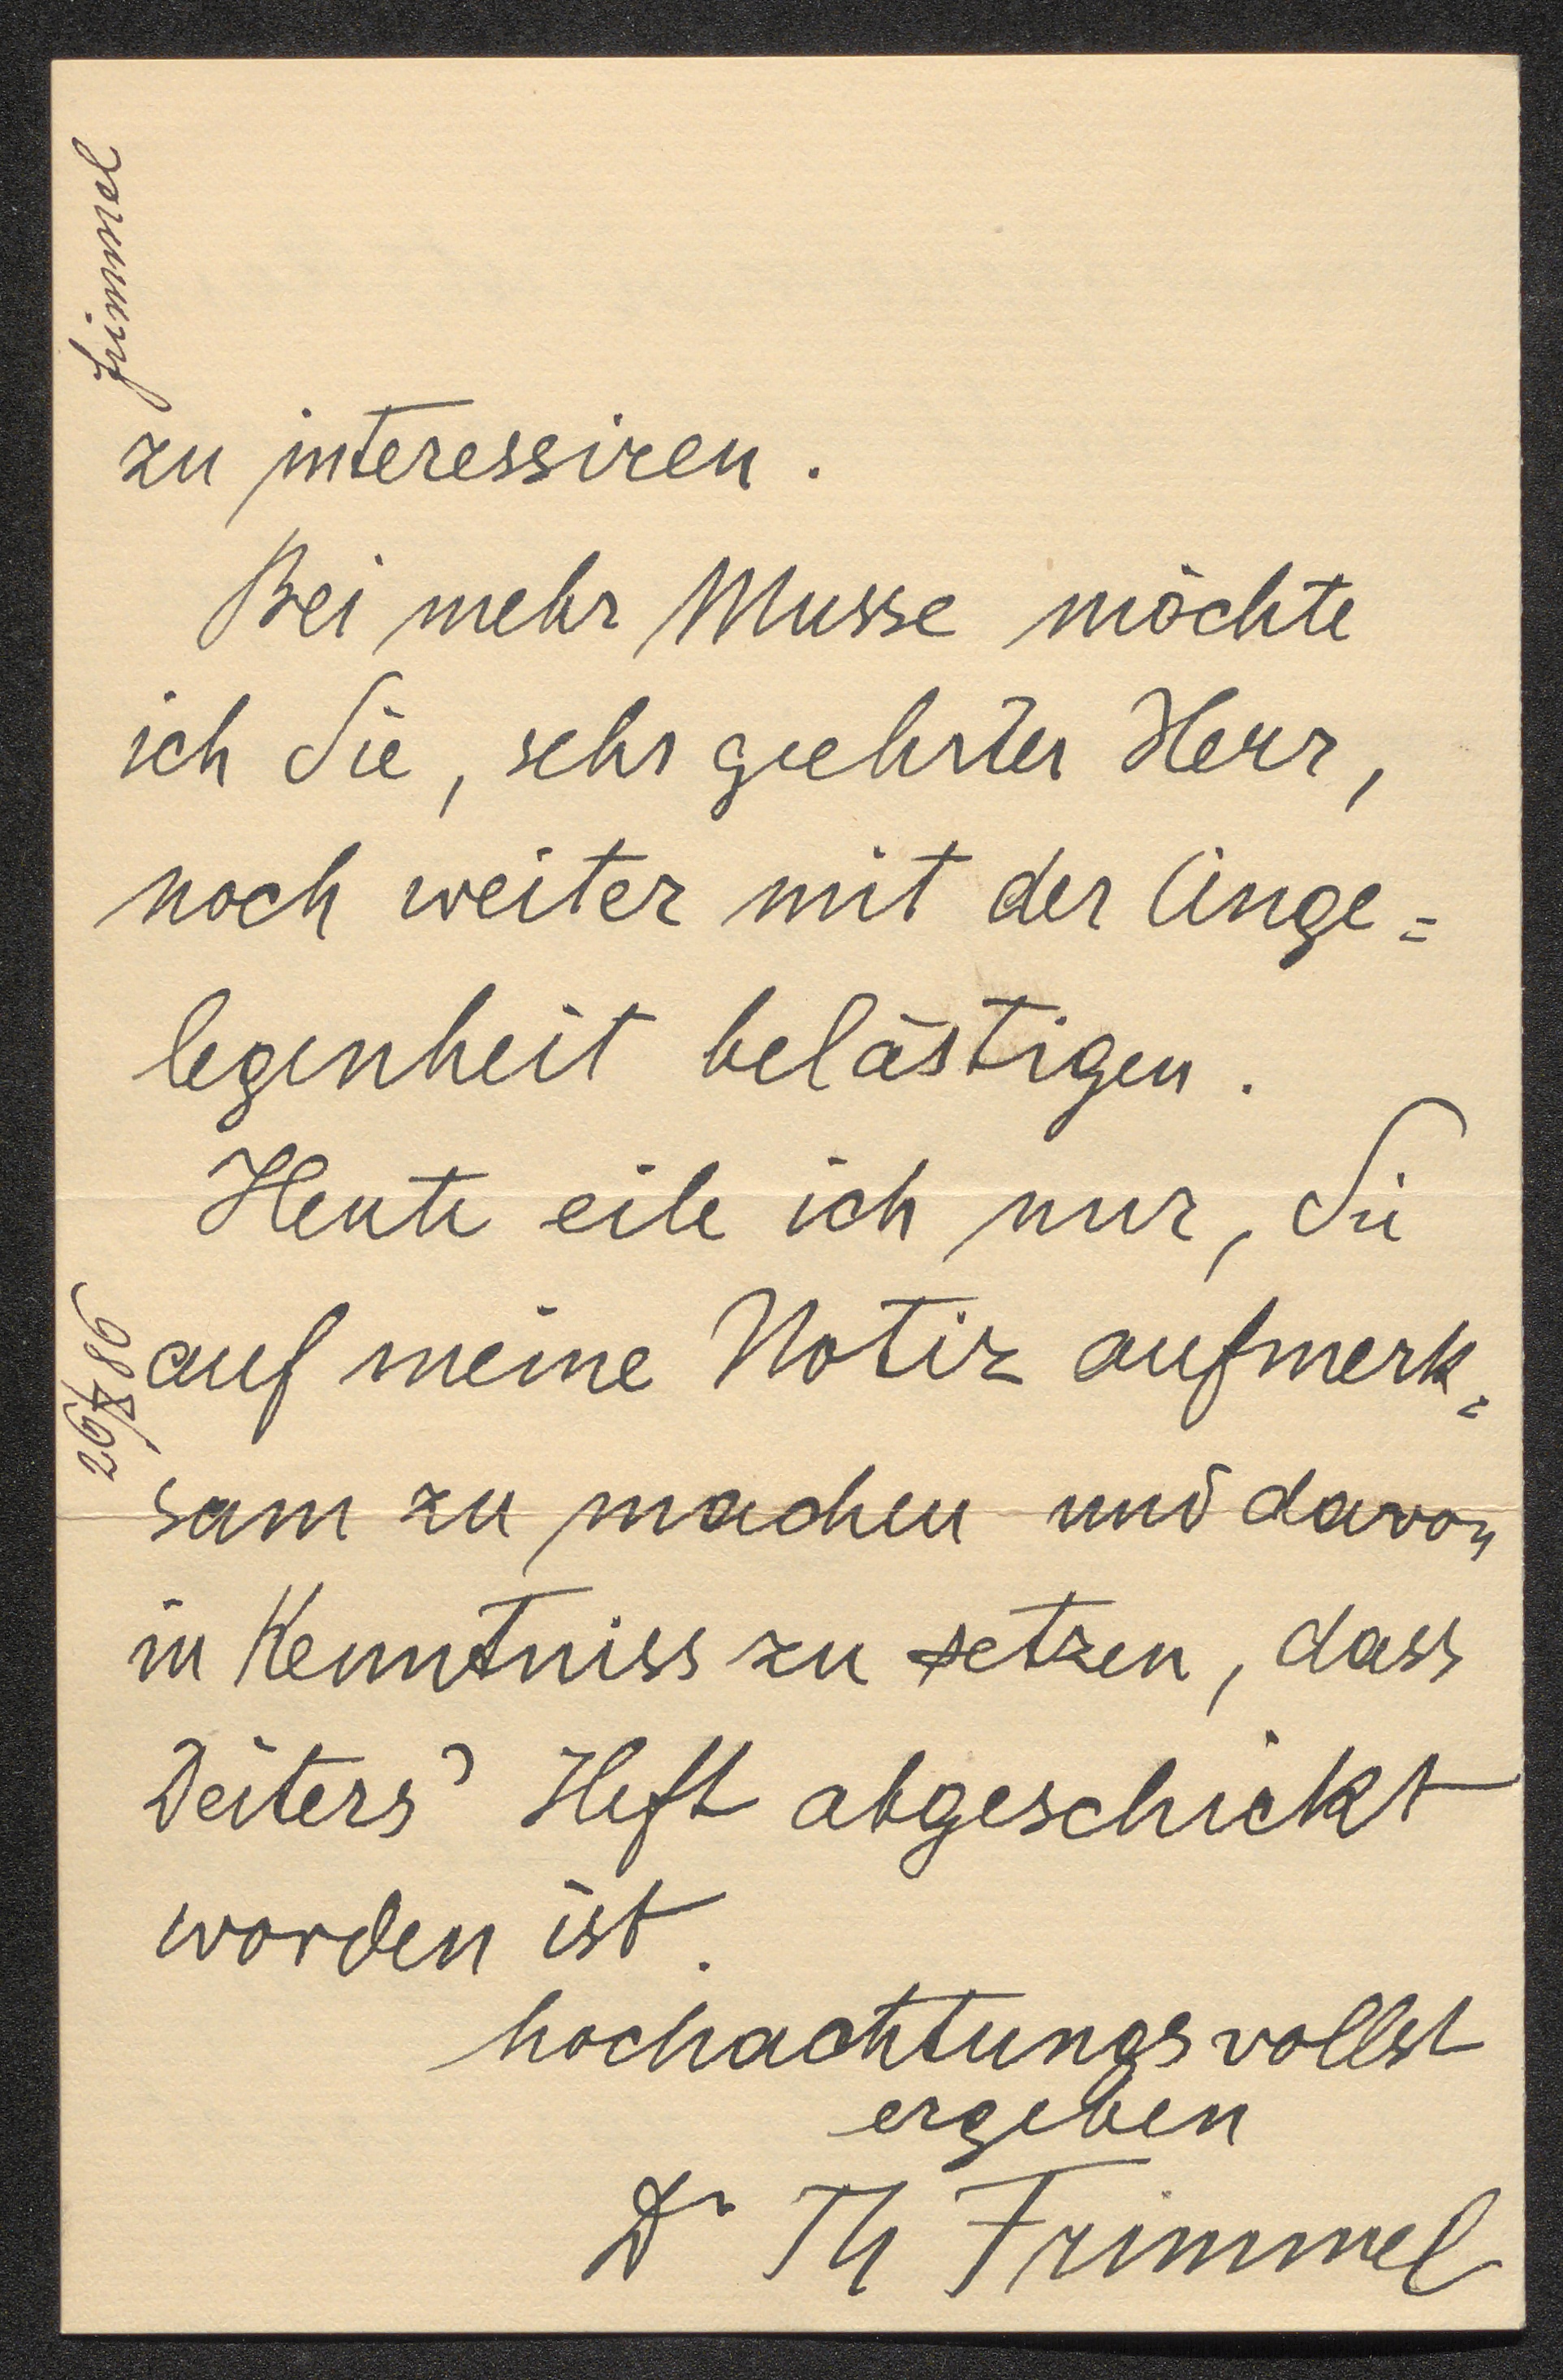 Frimmel
zu interessiren.
Bei mehr Musse möchte
ich Sie, sehr geehrter Herr,
noch weiter mit der Ange=
legenheit belästigen.
Heute eile ich nur, Sie
auf meine Notiz aufmerk=
sam zu machen und davon
in Kenntniss zu setzen, dass
Deiters' Heft abgeschickt
worden ist.
hochachtungsvollst
ergeben
Dr Th Frimmel